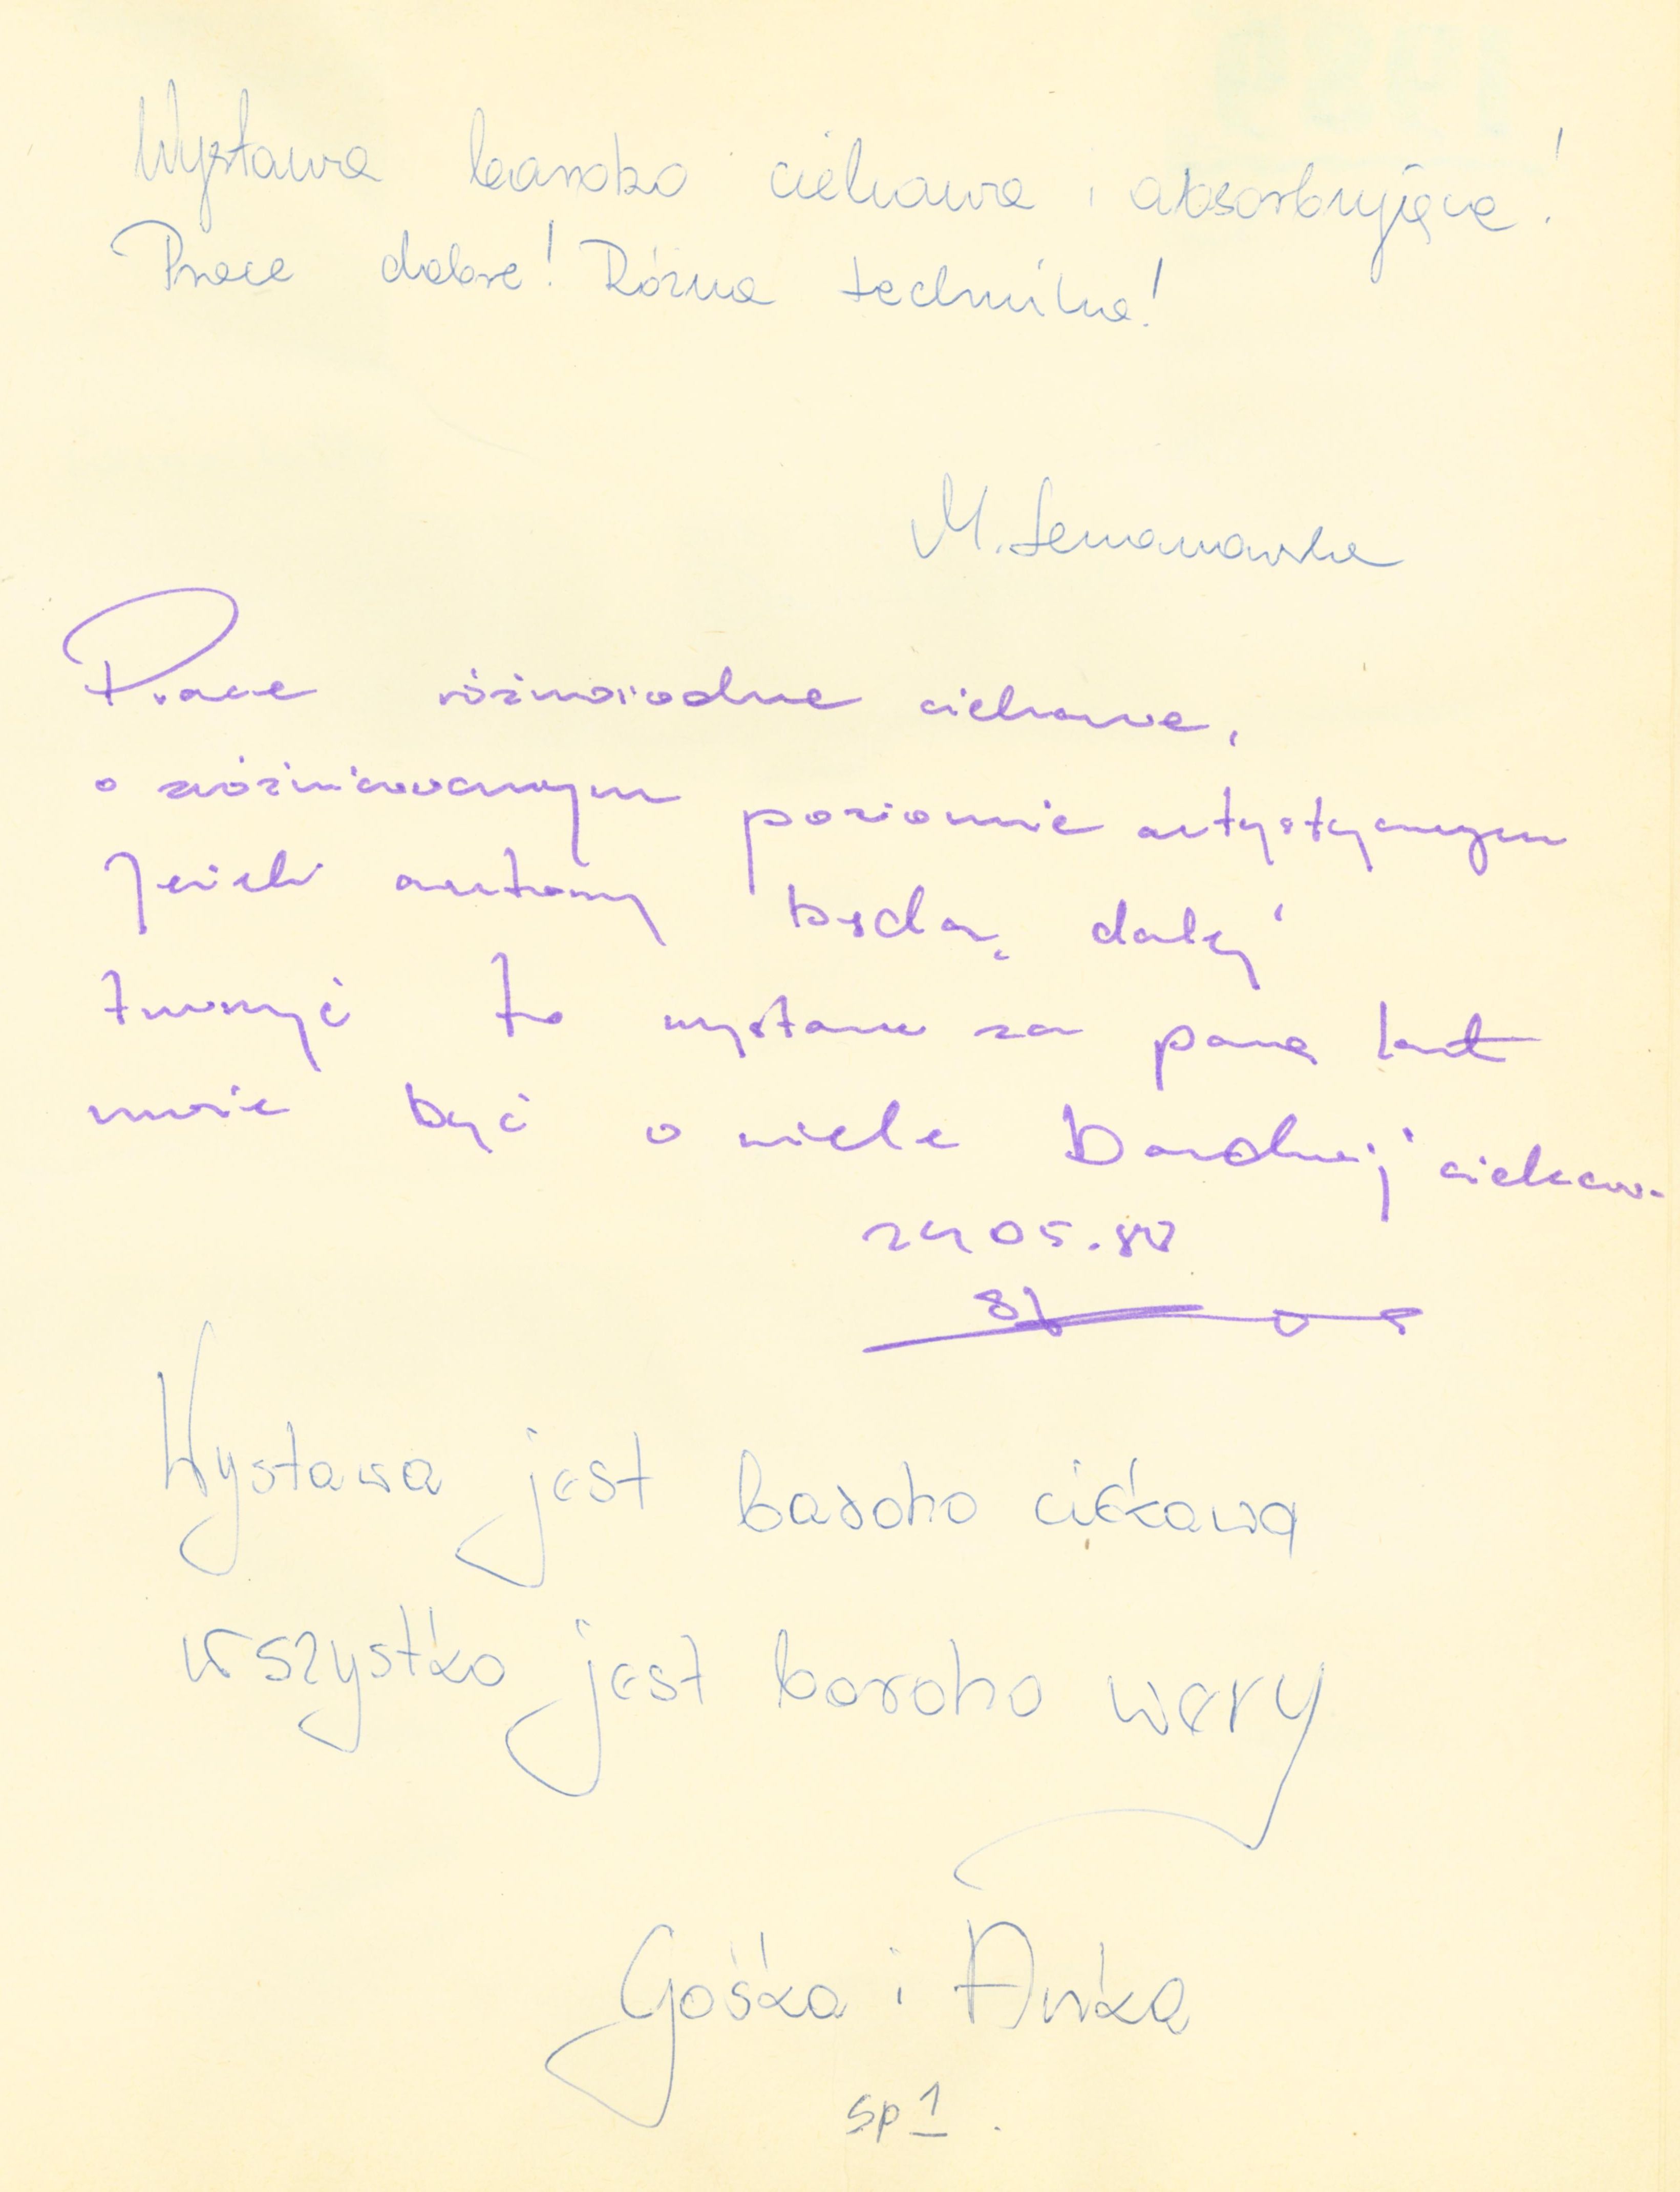 Wystawa bardzo ciekawa i absorbująca!
Prace dobre! Różna technika!
M.
Prace różnorodne ciekawe,
o zróżnicowanym poziomie artystycznym
Jeżeli autorzy będą dalej
tworzyć to wystawa za parę lat
może być o wiele bardziej ciekawa
24 05.
Wystawa jest bardzo ciekawa
wszystko jest bardzo wery
Gośka i Anka
sp 1